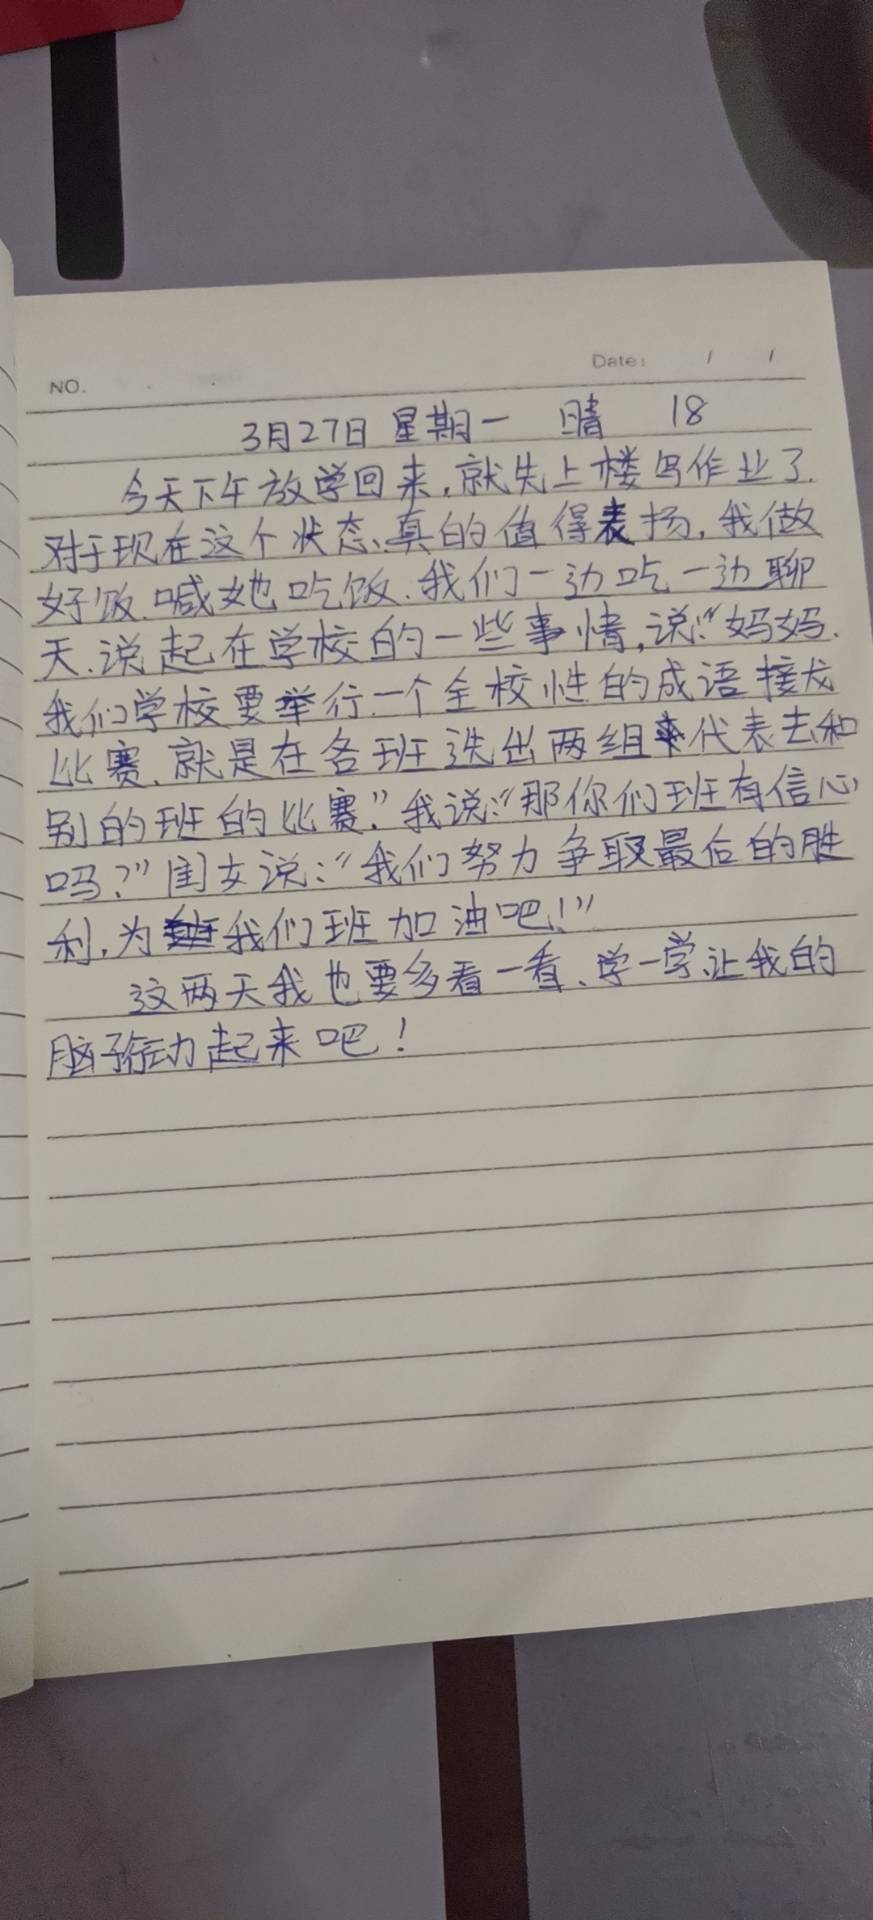 NO.
Date: / /
3月27日 星期一 晴 18
今天下午放学回来,就先上楼写作业了.
对于现在这个状态、真的值得表扬,我做
好饭.喊她吃饭.我们一边吃一边聊
天.说起在学校的一些事情,说:“妈妈.
我们学校要举行一个全校性的成语接龙
比赛、就是在各班选出两组来代表去和
别的班的比赛.”我说:“那你们班有信心
吗?”闺女说:“我们努力争取最后的胜
利,为我们班加油吧!”
这两天我也要多看一看、学一学、让我的
脑子行动起来吧!